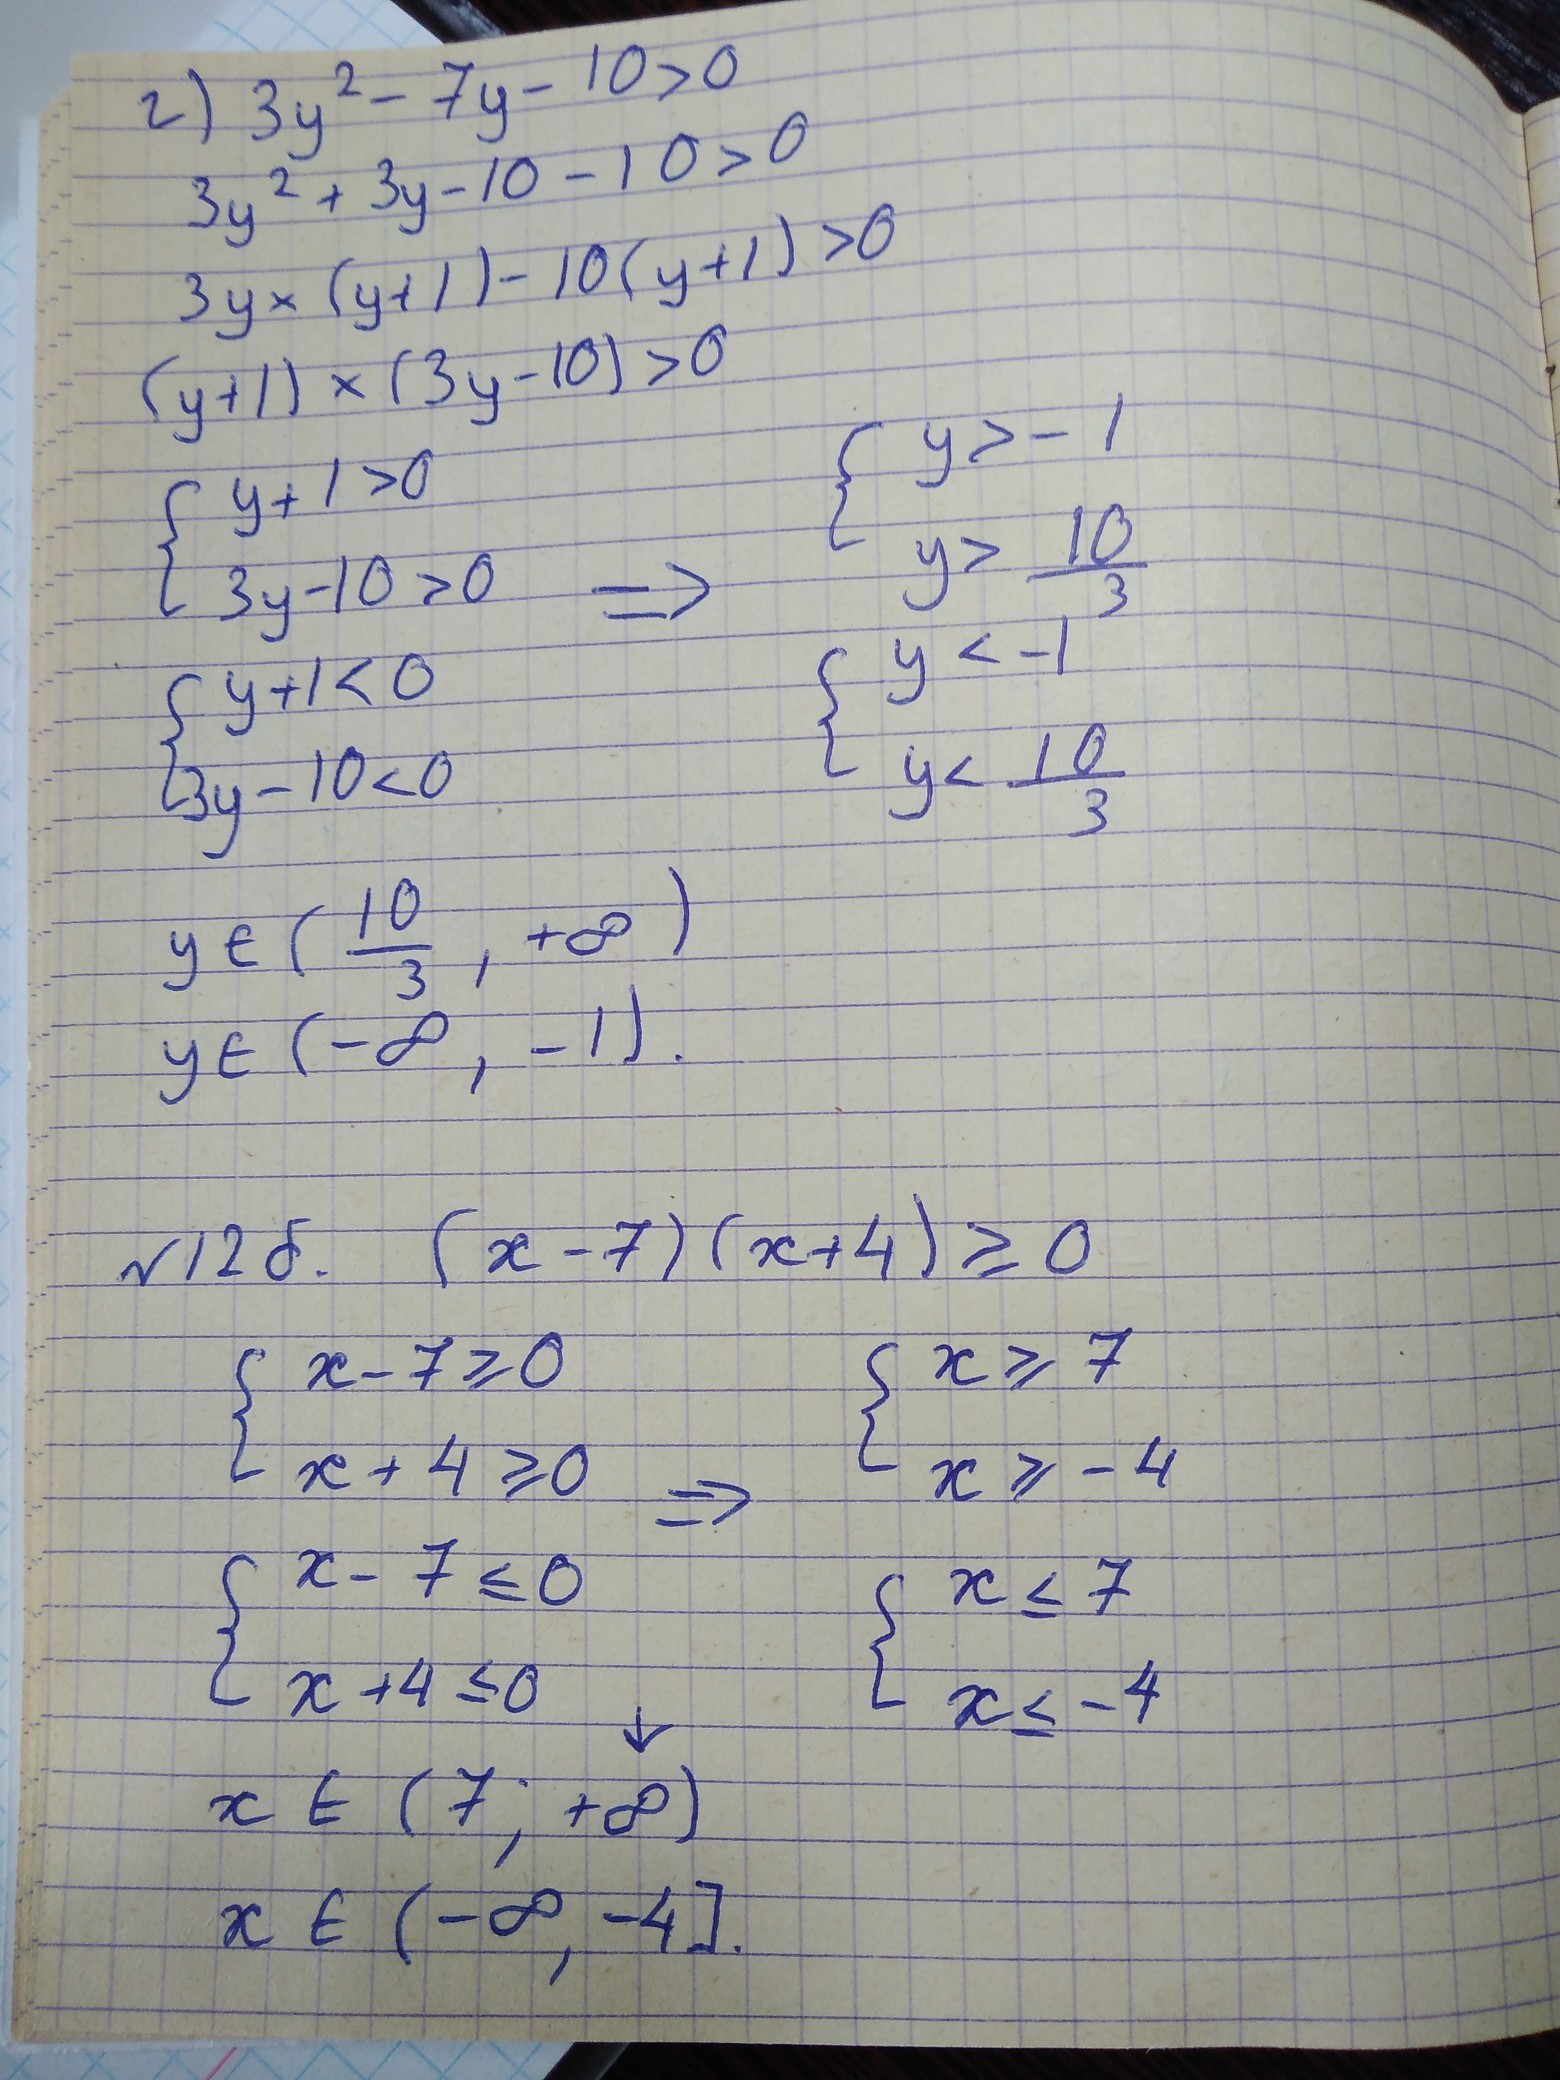 г) 3y² - 7y - 10 > 0
3y² + 3y - 10 - 10 > 0
3y × (y+1) - 10(y+1) > 0
(y+1) × (3y-10) > 0
{ y+1 > 0
3y-10 > 0 ⇒ { y > -1
y > 10/3
{ y+1 < 0
3y-10 < 0 { y < -1
y < 10/3
y ∈ (10/3, +∞)
y ∈ (-∞, -1).
№12б. (x-7)(x+4) ⩾ 0
{ x-7 ⩾ 0
x+4 ⩾ 0 ⇒ { x ⩾ 7
x ⩾ -4
{ x-7 ≤ 0
x+4 ≤ 0 ↓ { x ≤ 7
x ≤ -4
x ∈ (7; +∞)
x ∈ (-∞, -4].